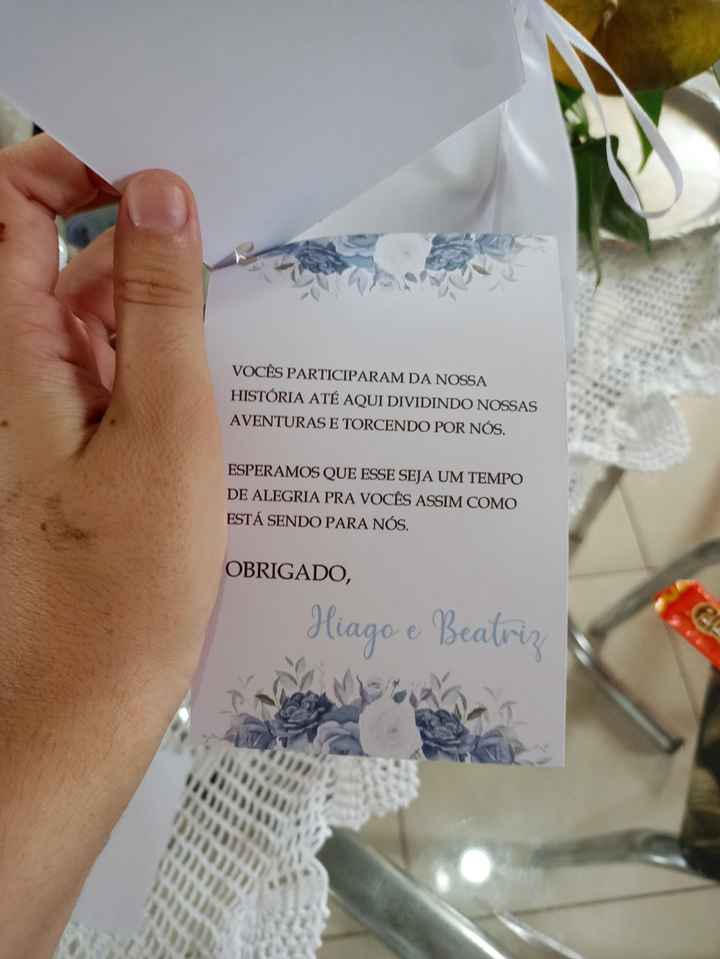 VOCÊS PARTICIPARAM DA NOSSA
HISTÓRIA ATÉ AQUI DIVIDINDO NOSSAS
AVENTURAS E TORCENDO POR NÓS.
ESPERAMOS QUE ESSE SEJA UM TEMPO
DE ALEGRIA PRA VOCÊS ASSIM COMO
ESTÁ SENDO PARA NÓS.
OBRIGADO,
Hiago e Beatriz